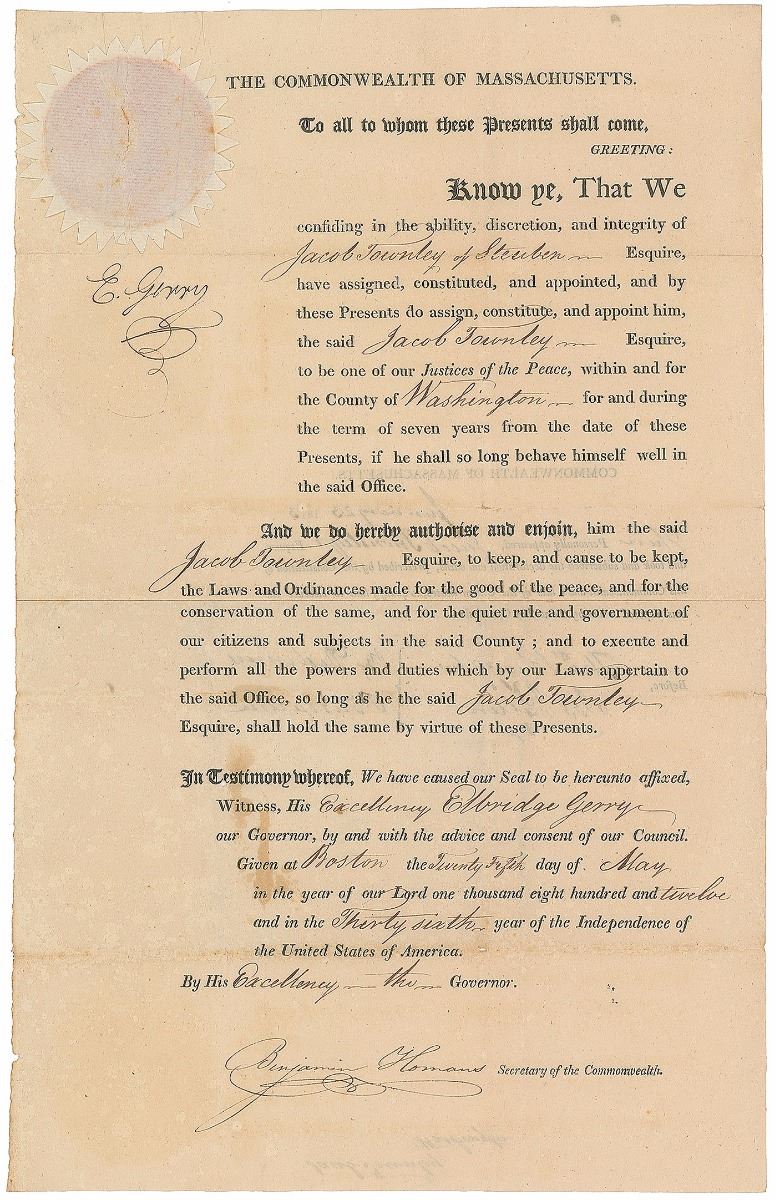 THE COMMONWEALTH OF MASSACHUSETTS.
To all to whom these Presents shall come,
GREETING:
Know ye, That We
confiding in the ability, discretion, and integrity of
Jacob Townley of Steuben Esquire,
have assigned, constituted, and appointed, and by
these Presents do assign, constitute, and appoint him,
the said Jacob Townley Esquire,
to be one of our Justices of the Peace, within and for
the County of Washington for and during
the term of seven years from the date of these
Presents, if he shall so long behave himself well in
the said Office.
E. Gerry
And we do hereby authorise and enjoin, him the said
Jacob Townley Esquire, to keep, and cause to be kept,
the Laws and Ordinances made for the good of the peace, and for the
conservation of the same, and for the quiet rule and government of
our citizens and subjects in the said County; and to execute and
perform all the powers and duties which by our Laws appertain to
the said Office, so long as he the said Jacob Townley
Esquire, shall hold the same by virtue of these Presents.
In Testimony whereof, We have caused our Seal to be hereunto affixed,
Witness, His Excellency Elbridge Gerry
our Governor, by and with the advice and consent of our Council.
Given at Boston the Twenty Fifth day of May
in the year of our Lord one thousand eight hundred and twelve
and in the Thirty sixth year of the Independence of
the United States of America.
By His Excellency the Governor.
Benjamin Homans Secretary of the Commonwealth.